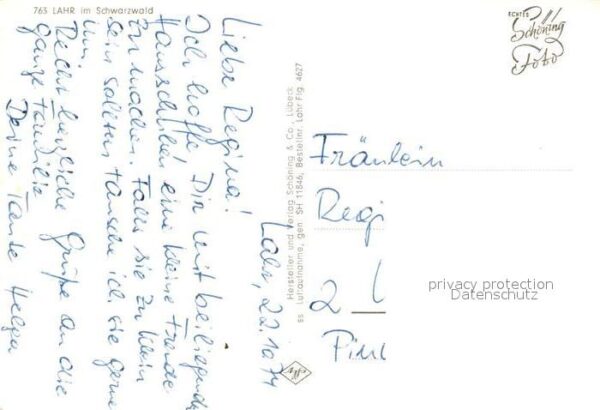 763 LAHR im Schwarzwald
ECHTES
Schöning
Foto
Lahr, 22.10.74
Liebe Regina!
Ich hoffe Dir mit beiliegenden
Hausschuhen eine kleine Freude
zu machen. Falls sie zu klein
sein sollten, tausche ich sie gerne
um.
Recht herzliche Grüße an die
ganze Familie
Deine Tante Helga
Hersteller und Verlag Schöning & Co., Lübeck
ss Luftaufnahme, gen. SH 11846, Bestellnr. Lahr Flg. 4627
Agfa
Fräulein
Regi
2
privacy protection
Datenschutz